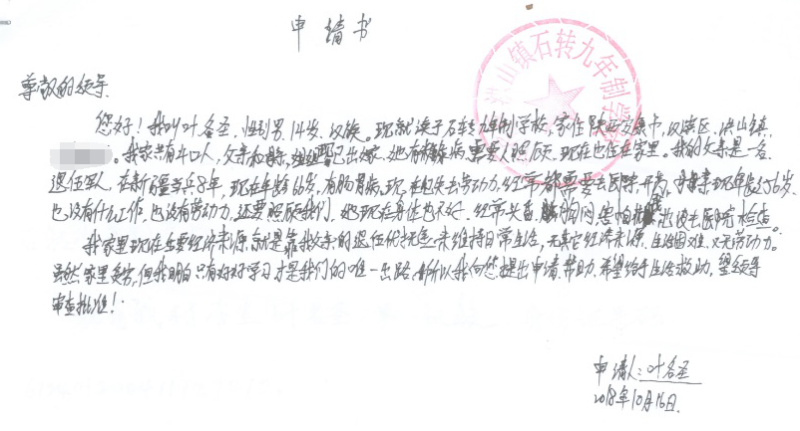 申请书
洪山镇石转九年制学
尊敬的领导
您好！我叫叶名圣,性别男,14岁,汉族。现就读于石转九年制学校,家住陕西安康市,汉滨区,洪山镇,
。我家共有四口人,父亲和母亲,姐姐已出嫁,她有病,需要人照顾,现在也住在家里。我的父亲是一名
退伍军人,在新疆当兵8年,现在年龄66岁,有胃病,现在也失去劳动力,经常都需要去医院,开药,母亲现年龄56岁,
也没有什么工作,也没有劳动力,还要照顾我们,她现在身体也不好,经常头晕,胸闷,没去医院检查。
我家里现在主要经济来源,就是靠我父亲的退伍优抚金来维持日常生活,无其它经济来源,生活困难,又无劳动力。
虽然家里贫穷,但我明白只有好好学习才是我们的唯一出路,所以我向您提出申请帮助,希望给予生活救助,望领导
审查批准!
申请人:叶名圣
2018年10月16日.